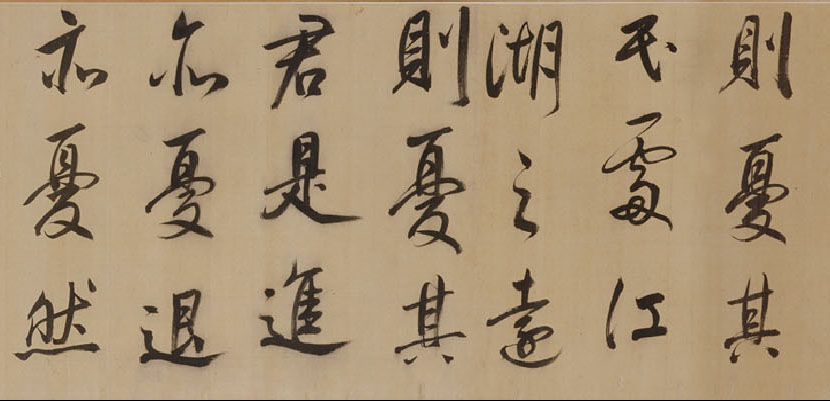 則憂其
民處江
湖之遠
則憂其
君是進
亦憂退
亦憂然